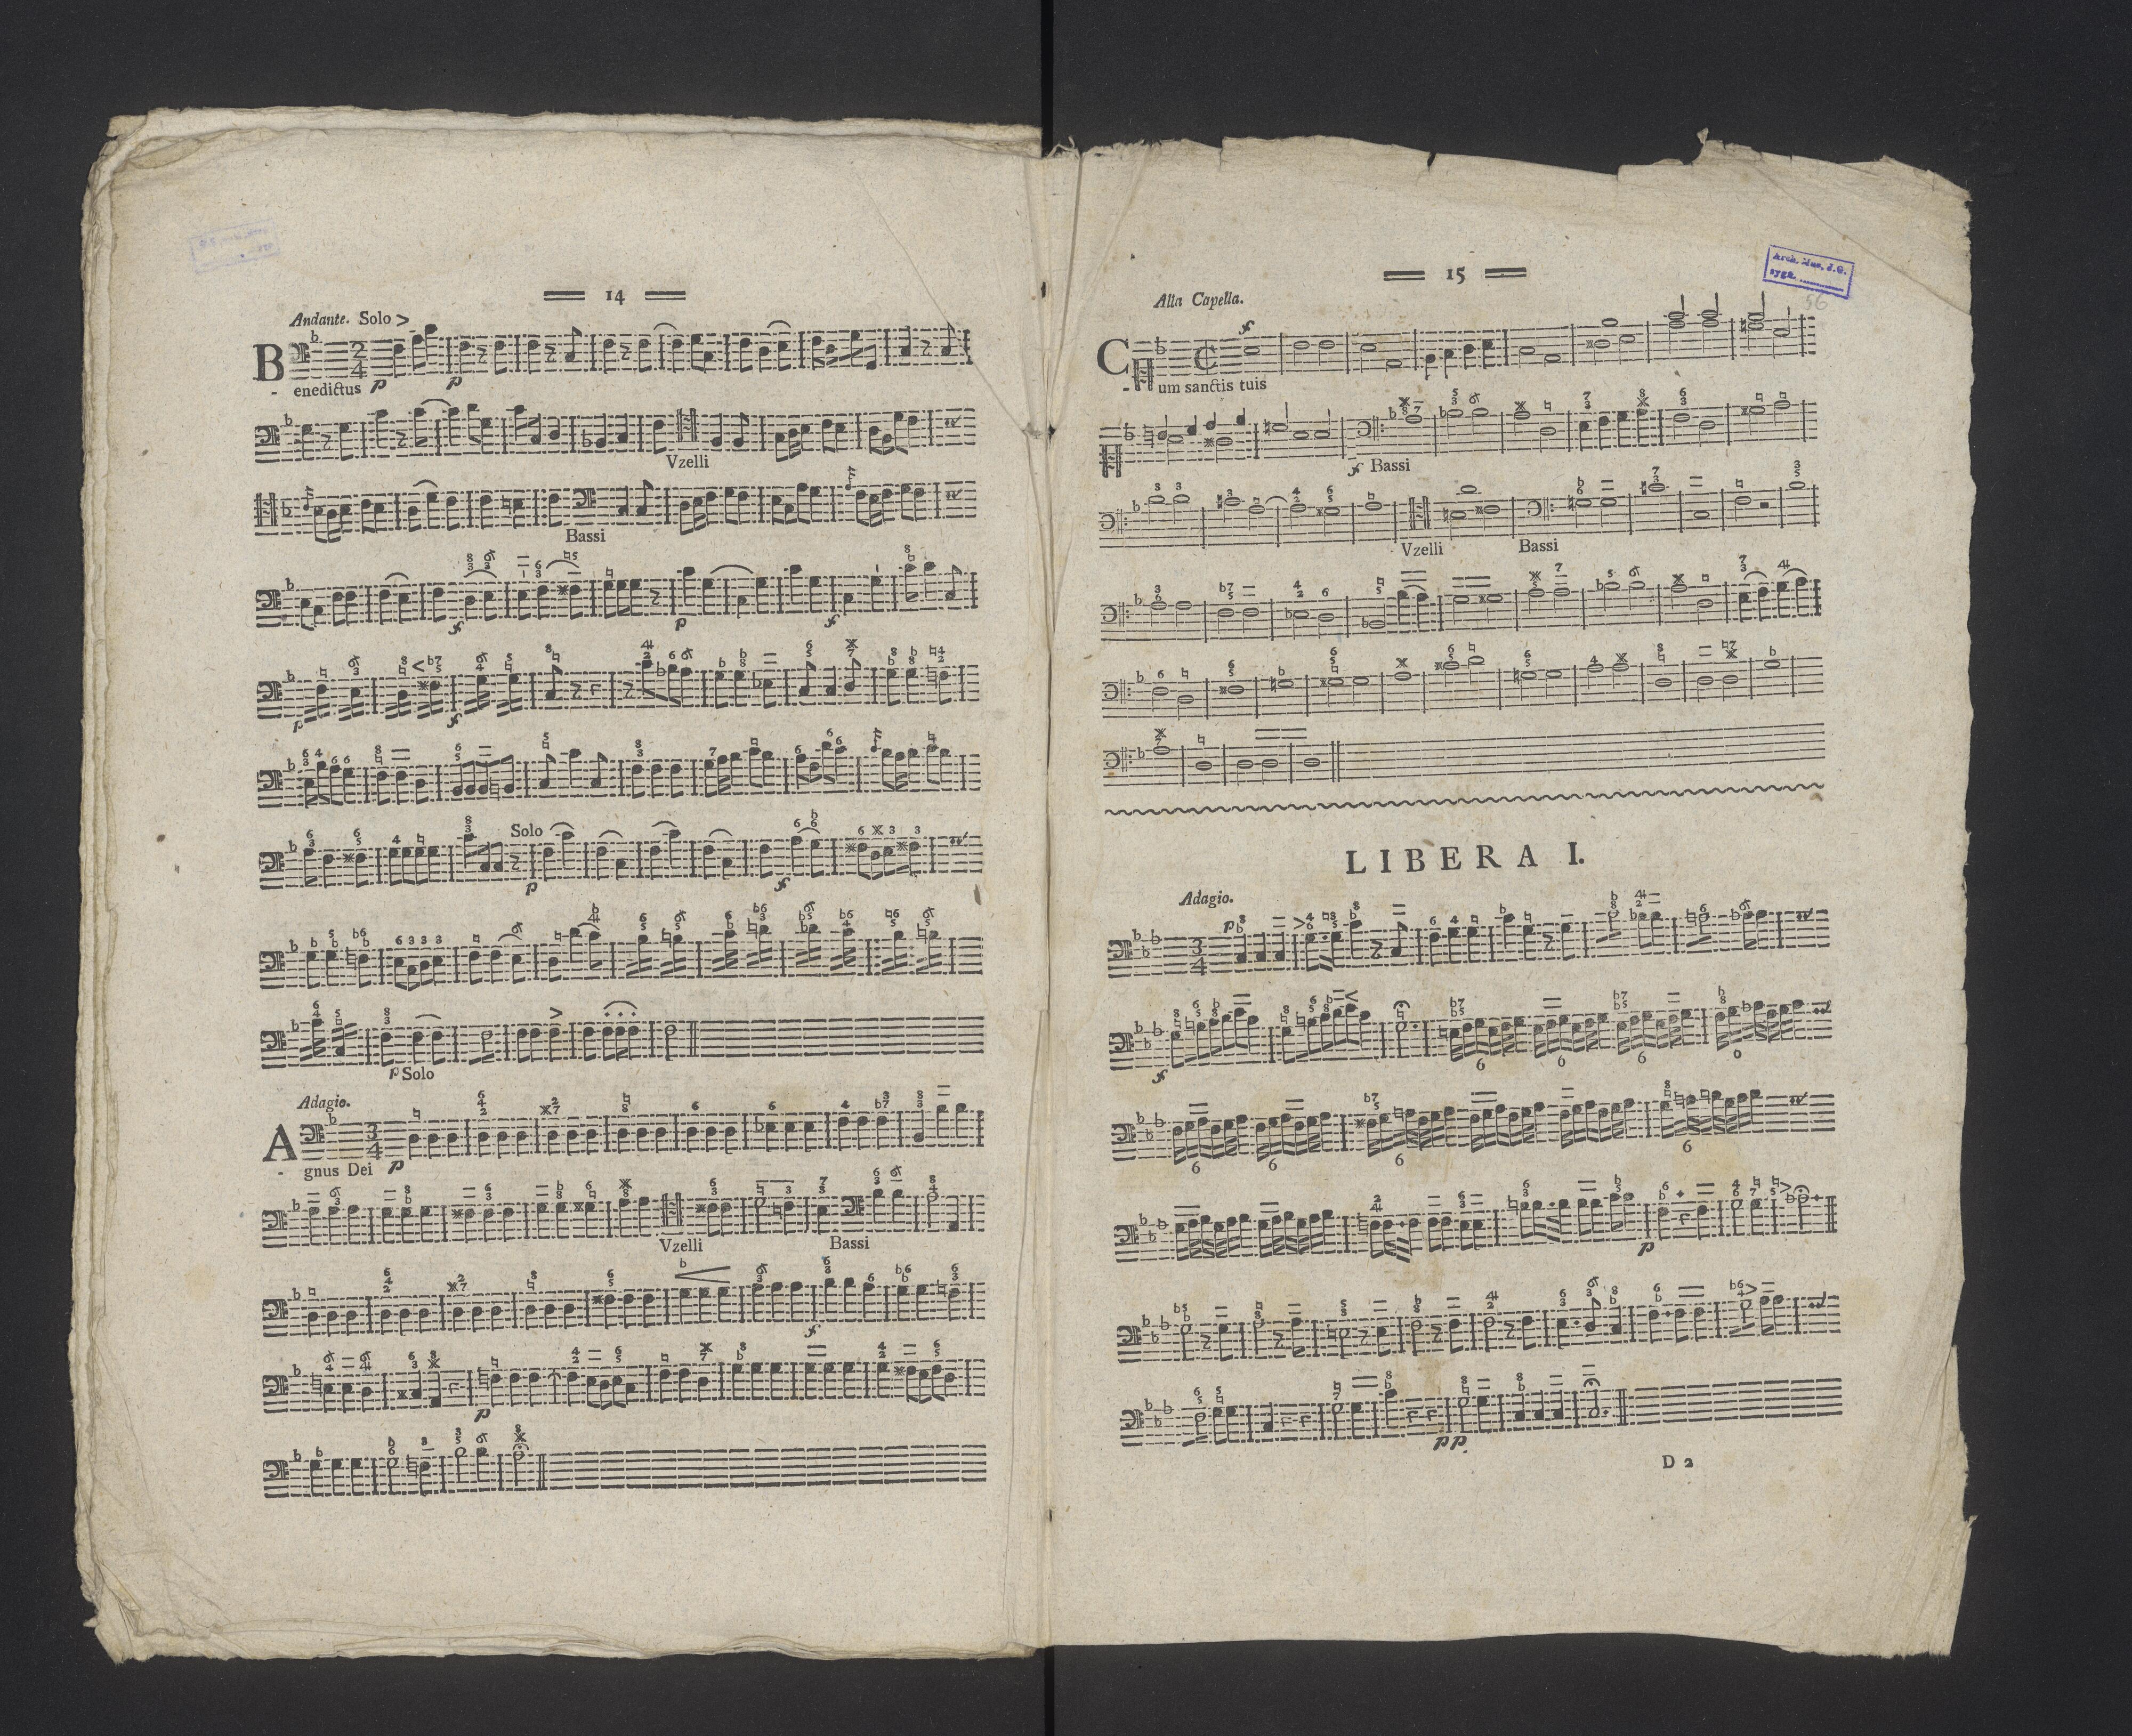 14
Andante. Solo
Benedictus p p
Vzelli
Bassi
f p f
p f
Solo
p f
p Solo
Adagio.
Agnus Dei p
Vzelli Bassi
f
p
15
Arch. Mus. J.G.
sygn.
56
Alla Capella.
f
Cum sanctis tuis
f Bassi
Vzelli Bassi
LIBERA I.
Adagio.
p
f
p
pp.
D 2